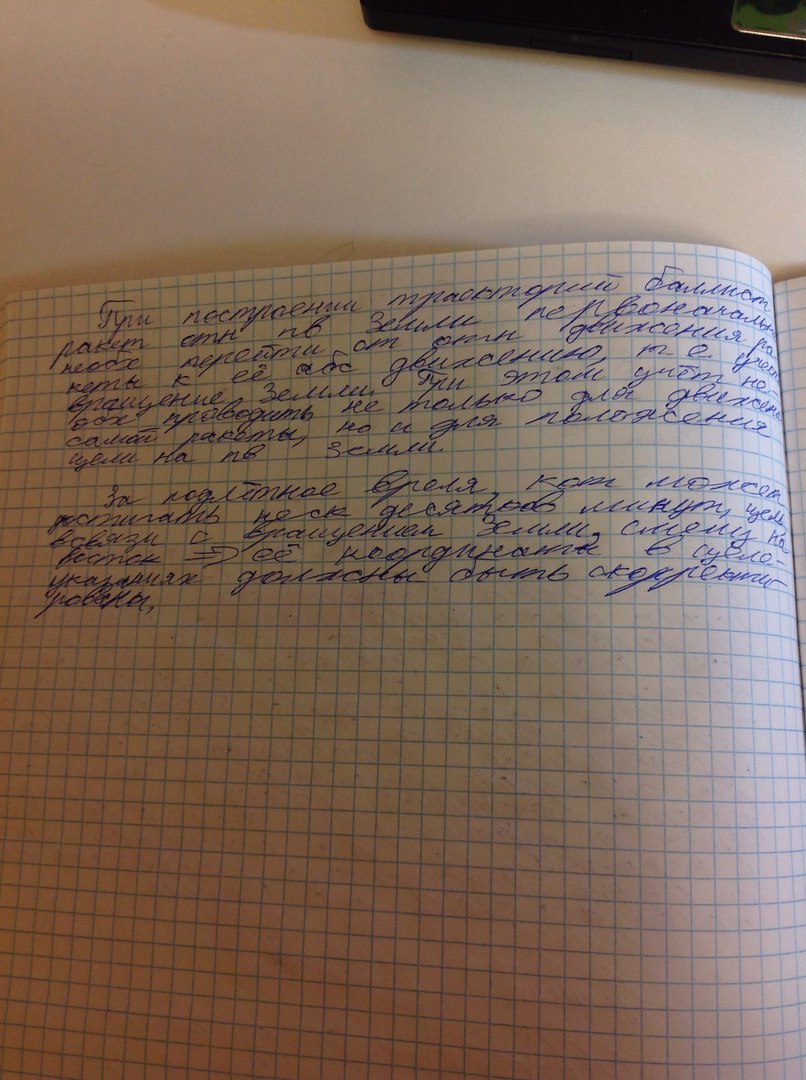 При построении траекторий баллист
ракет отн пв Земли первоначально
необх перейти от отн движения ра
кеты к её абс движению, т.е. учесть
вращение Земли. При этом учёт не-
обх проводить не только для движения
самой ракеты, но и для положения
цели на пв Земли.
За подлётное время, кот может
достигать неск десятков минут, цель
всвязи с вращением Земли, на
восток => её координаты в целе-
указаниях должны быть скорректи-
рованы,